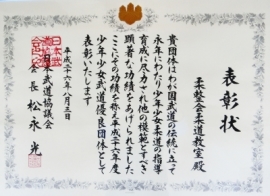 表彰状
柔整会柔道教室殿
貴団体はわが国武道の伝統に立って
永年にわたり少年少女柔道の指導
育成に尽力され他の模範とすべき
顕著な功績をあげられました
ここにその功績を称え平成十六年度
少年少女武道優良団体として
表彰いたします
平成十六年八月三日
日本武道協議会
会長 松永光